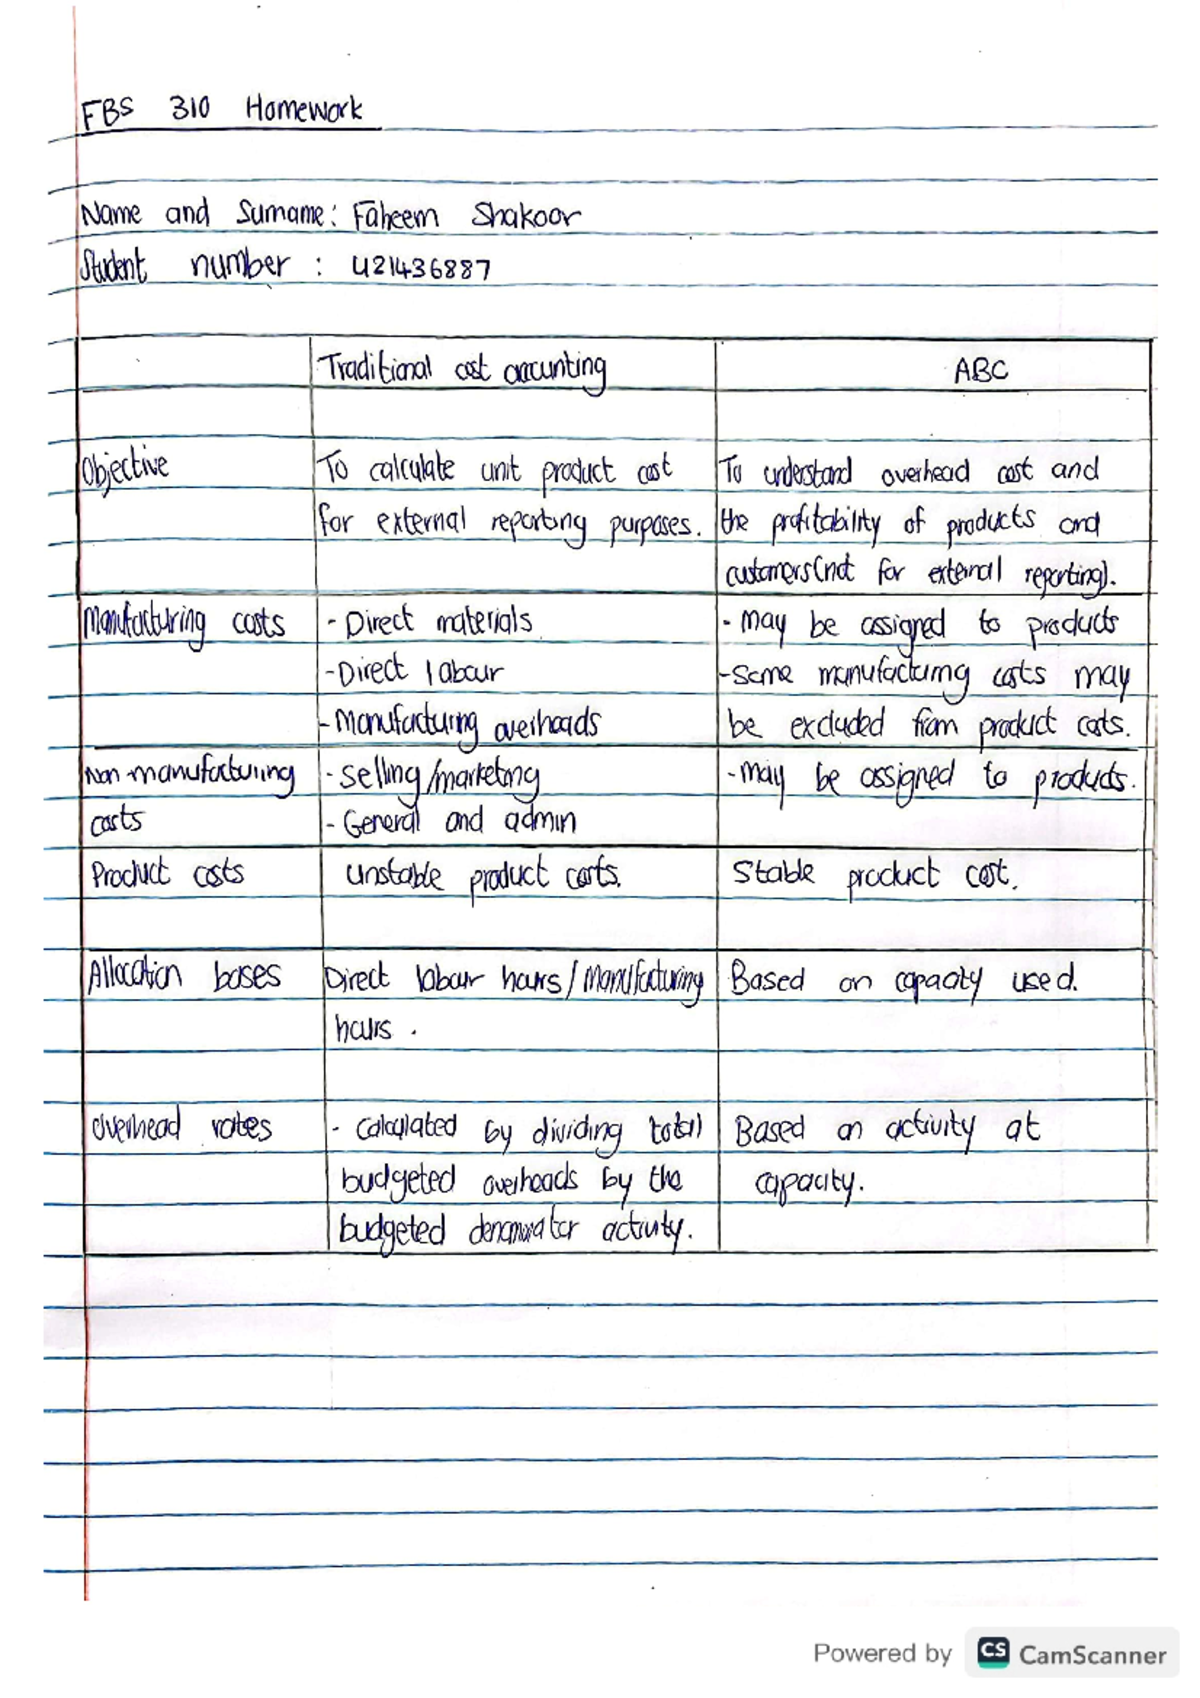 FBS 310 Homework
Name and Surname: Faheem Shakoor
Student number : u21436887
Traditional cost accounting
ABC
Objective
To calculate unit product cost
for external reporting purposes.
To understand overhead cost and
the profitability of products and
customers(not for external reporting).
Manufacturing costs
- Direct materials
- Direct labour
- Manufacturing overheads
- may be assigned to products
- Some manufacturing costs may
be excluded from product costs.
Non-manufacturing
costs
- selling/marketing
- General and admin
- may be assigned to products.
Product costs
unstable product costs.
Stable product cost.
Allocation bases
Direct labour hours/Manufacturing
hours.
Based on capacity used.
Overhead rates
- calculated by dividing total
budgeted overheads by the
budgeted denominator activity.
Based on activity at
capacity.
Powered by CS CamScanner